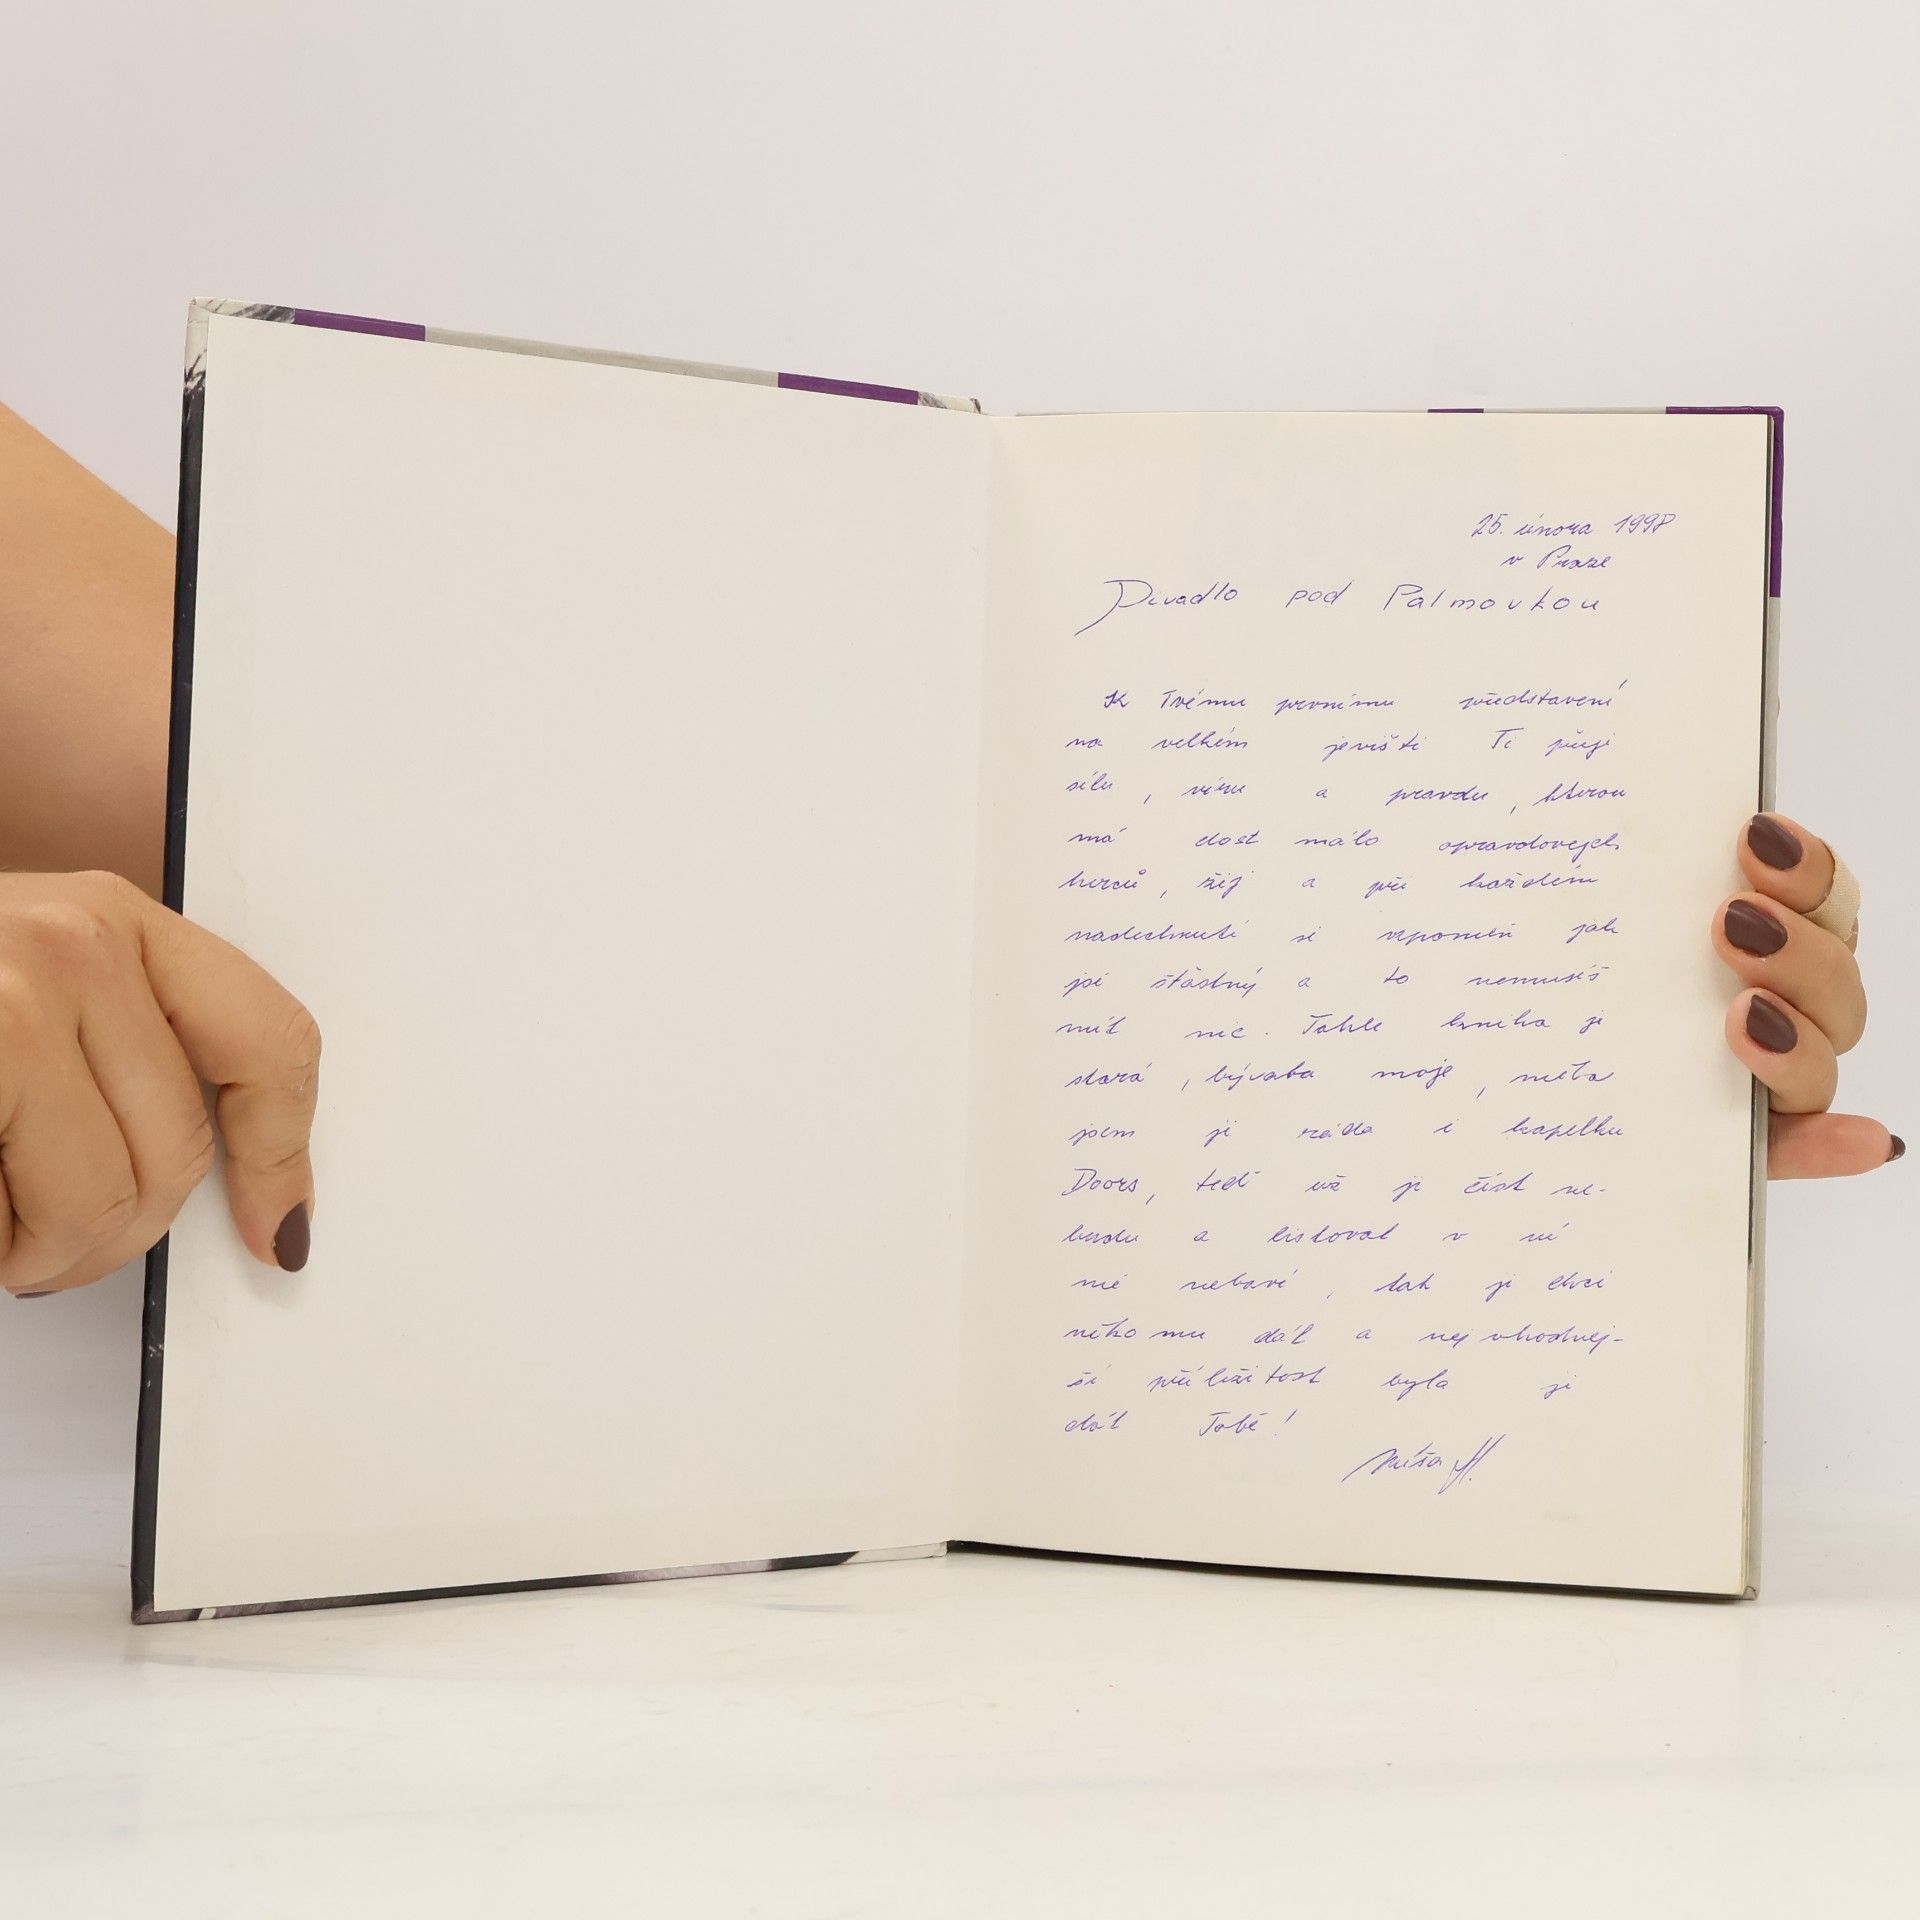 25. února 1998
v Praze
Divadlo pod Palmovkou
K Tvému prvnímu představení
na velkém jevišti Ti přeji
sílu, víru a pravdu, kterou
má dost málo opravdovejch
herců, žij a při každém
nadechnutí si vzpomeň jak
jsi šťastný a to nemusíš
mít nic. Tahle kniha je
stará, bývala moje, měla
jsem ji ráda i kapelku
Doors, teď už ji číst ne-
budu a listovat v ní
mě nebaví, tak ji chci
někomu dát a nejvhodněj-
ší příležitost byla ji
dát Tobě!
Míša H.